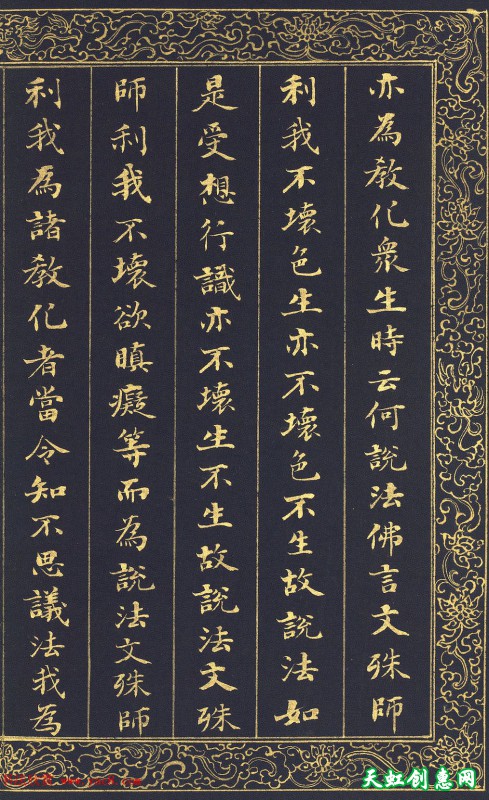 亦為教化衆生時云何說法佛言文殊師
利我不壞色生亦不壞色不生故說法如
是受想行識亦不壞生不生故說法文殊
師利我不壞欲瞋癡等而為說法文殊師
利我為諸教化者當令知不思議法我為
天虹创惠网